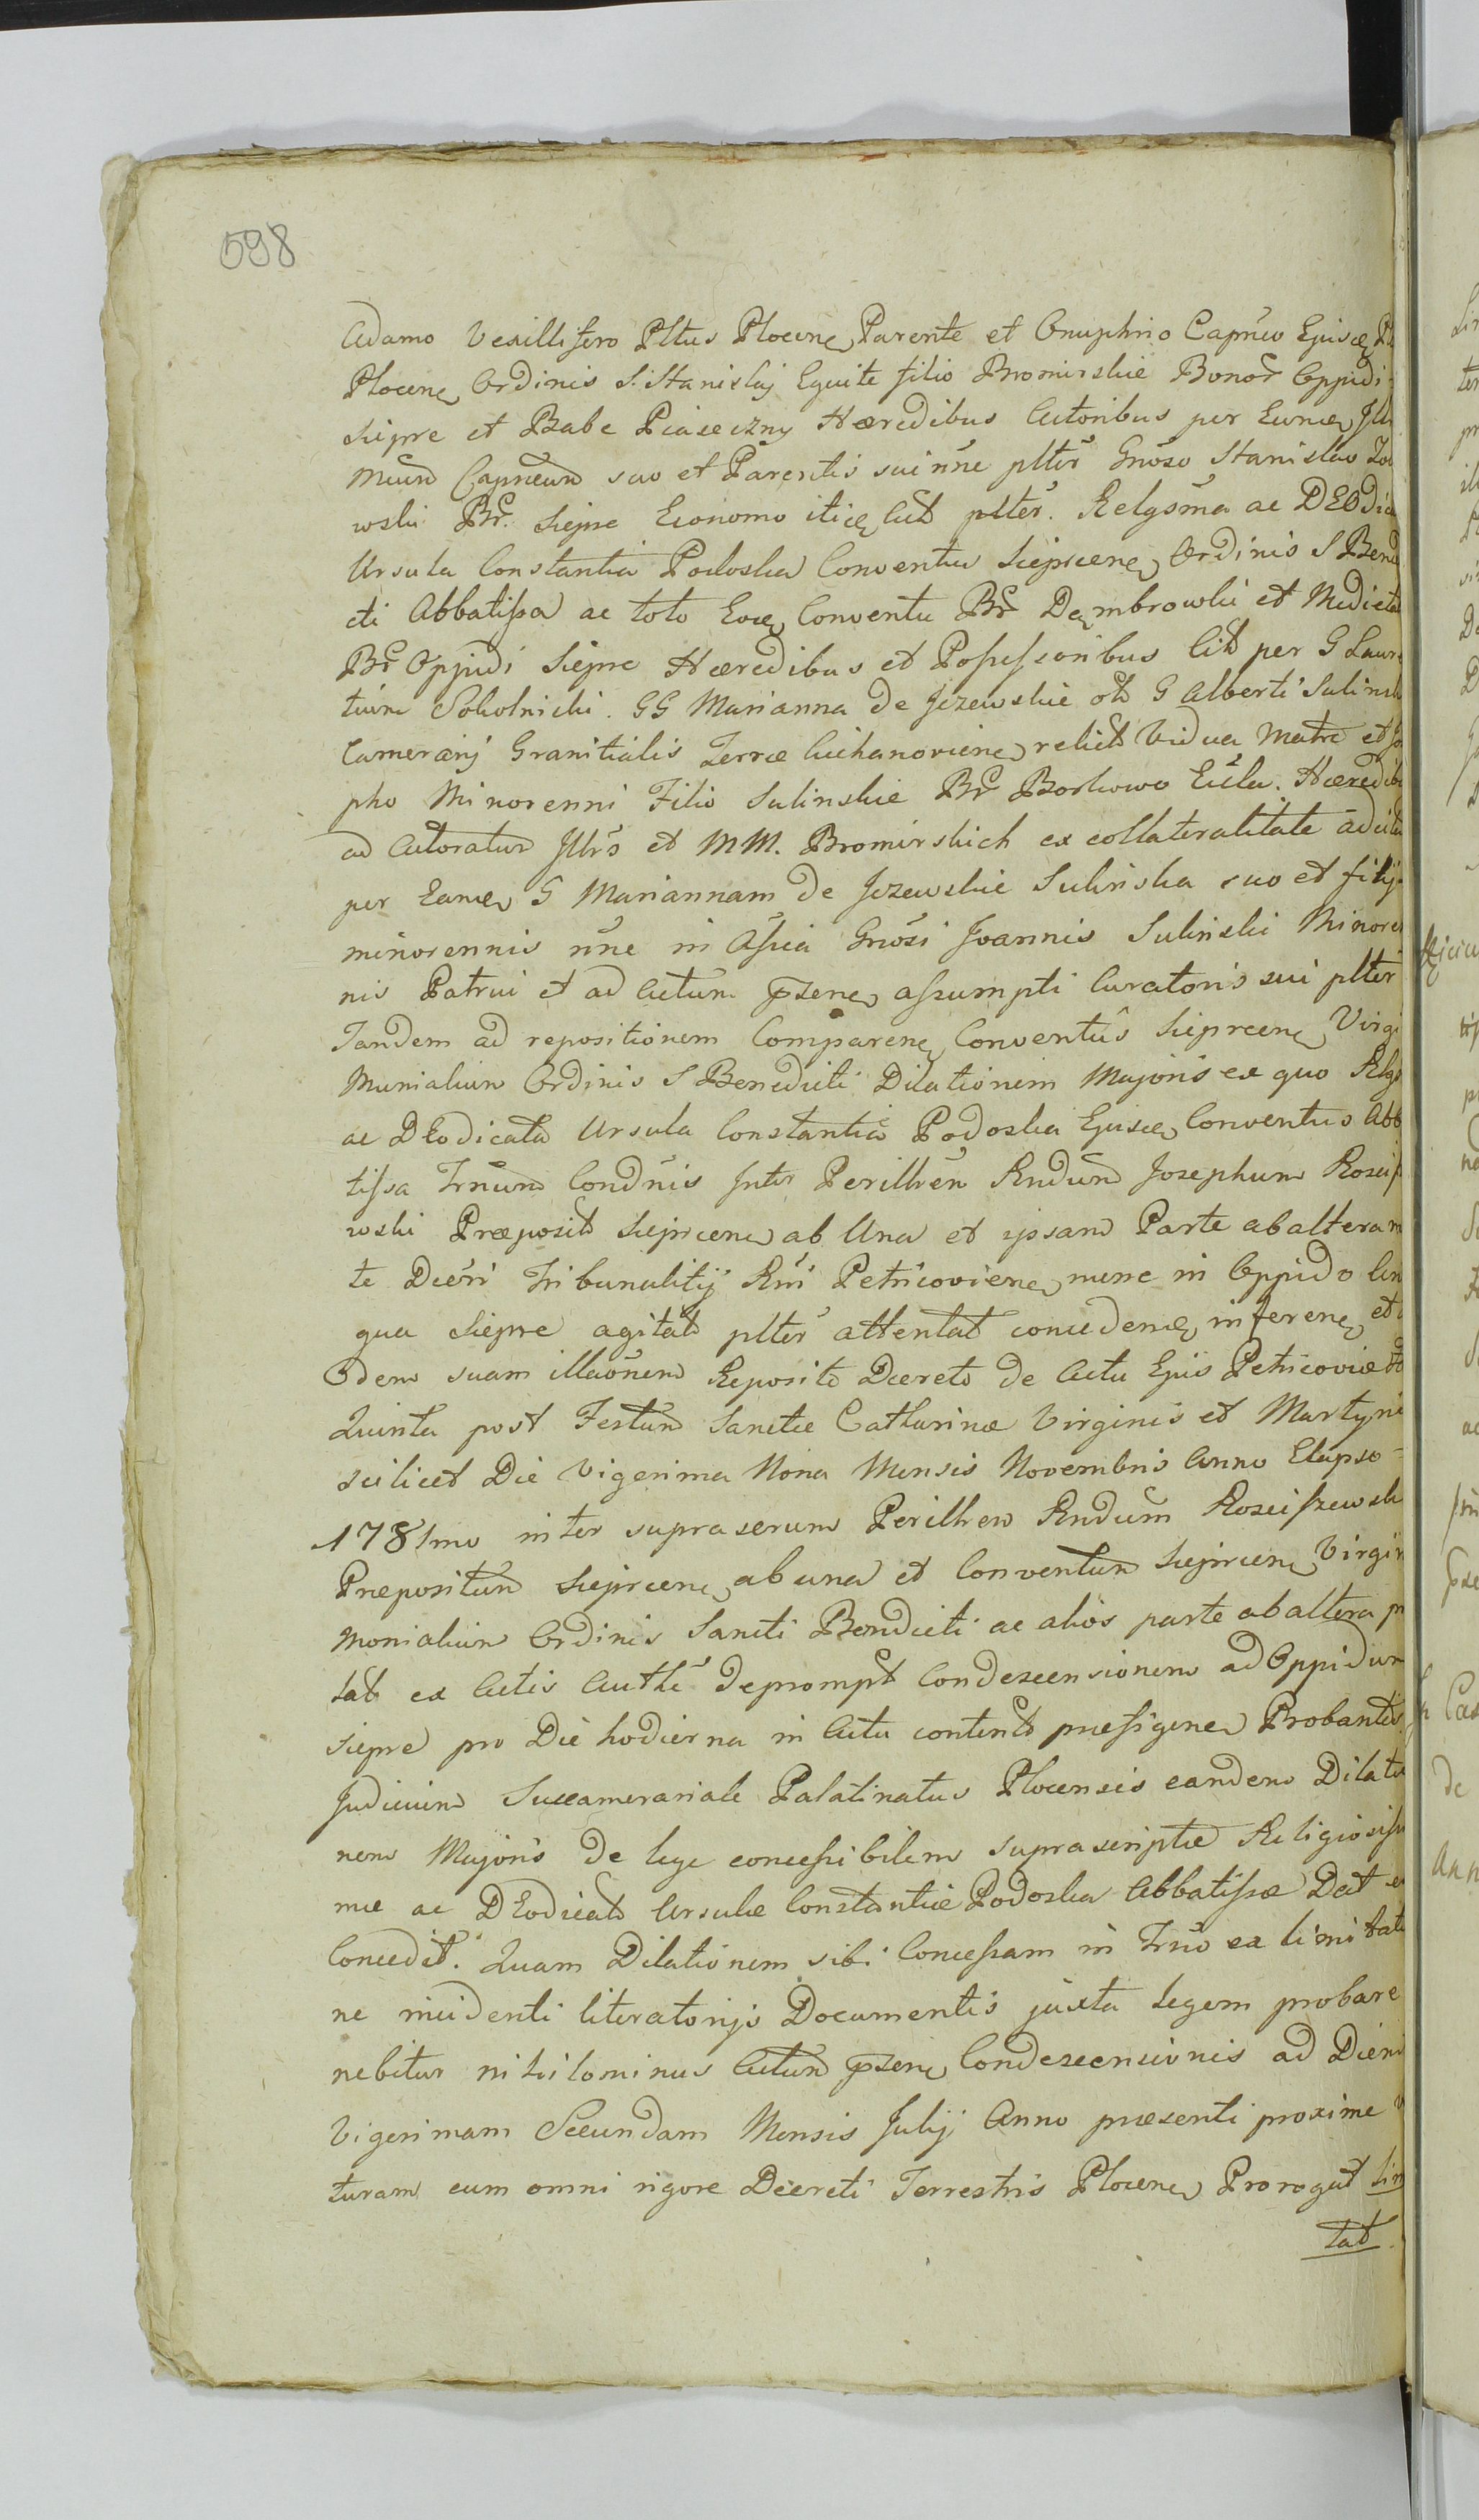 598
Adamo Vexillifero Pltus Plocen Parente et Onuphrio Capneo Ejusd
Plocen Ordinis S. Stanislaj Equite filio Bromirskie Bonor Oppidi
Siepre et Babe Piaseczny Hæredibus Actoribus per Eund Ill
Mcum Capneum suo et Parentis sui nne plter Gnoso Stanislao
wski Br. Siepre Economo itid Cit plter. Relgosma ac DEOdic
Ursula Constantia Podoska Conventus Sieprcen Ordinis S Bene
cti Abbatissa ac toto Eod Conventu Br Dembrowki et Medieta
Br Oppidi Siepre Hæredibus et Possessoribus Cit per G Laure
tium Sokolnicki. GG Marianna de Jezewskie olt G Alberti Sulinsk
Camerarij Granitialis Terræ Ciechanovien relict Vidua Matre et Jo
pho Minorenni Filio Sulinskie Br Borkowo Hæredib
ad Actoratum Illrs et MM. Bromirskich ex collateralitate adcit
per Eand G Mariannam de Jezewskie Sulinska suo et filij
minorennis nne in Assia Gnosi Joannis Sulinski Minoren
nis Patrui et ad Actum pszen assumpti Curatoris sui plter
Tandem ad repositionem Comparen Conventus Sieprcen Virgi
Munialium Ordinis S Benedicti Dilationem Majoris ex quo Relgo
ac DEodicata Ursula Constantia Podoska Ejusd Conventus Abb
tissa Trnum Condnis Inter Perillren Rndum Josephum Rosciss
wski Præposit Sieprcen ab Una et ipsam Parte ab altera
te Dceri Tribunalitij Rni Petricovien nunc in Oppido
qua Siepre agitat plter attentat concedend inferen et
dem suam illaonem Reposito Decreto de Actu Ejus Petricoviæ
Quinta post Festum Sanctæ Catharinæ Virginis et Martyris
scilicet Die Vigesima Nona Mensis Novembris Anno Elapso
1781mo inter suprascrum Perillren Rndum Rosciszewsk
Præpositum Sieprcen ab una et Conventum Sieprcen Virgin
Monialium Ordinis Sancti Bendicti ac alios parte ab altera
lat ex Actis Authi Deprompt Condescensionem ad Oppidum
Siepre pro Die hodierna in Actu content præfigen Probantis.
Judicium Succamerariale Palatinatus Plocensis eandem Dilatio
nem Majoris de lege concessibilem suprascriptæ Religiosiss
mæ ac DEodicat Ursulæ Constantiæ Podoska Abbatissæ Dat et
Concedit. Quam Dilationem sibi Concessam in Trno ex limitatio
ne incidenti literatorijs Documentis juxta legem probare
nebitur nihilominus Actum pszen Condescensionis ad Diem
Vigesimam Secundam Mensis Julij Anno præsenti proxime
turam cum omni rigore Decreti Terrestris Plocen Prorogat lim
tat